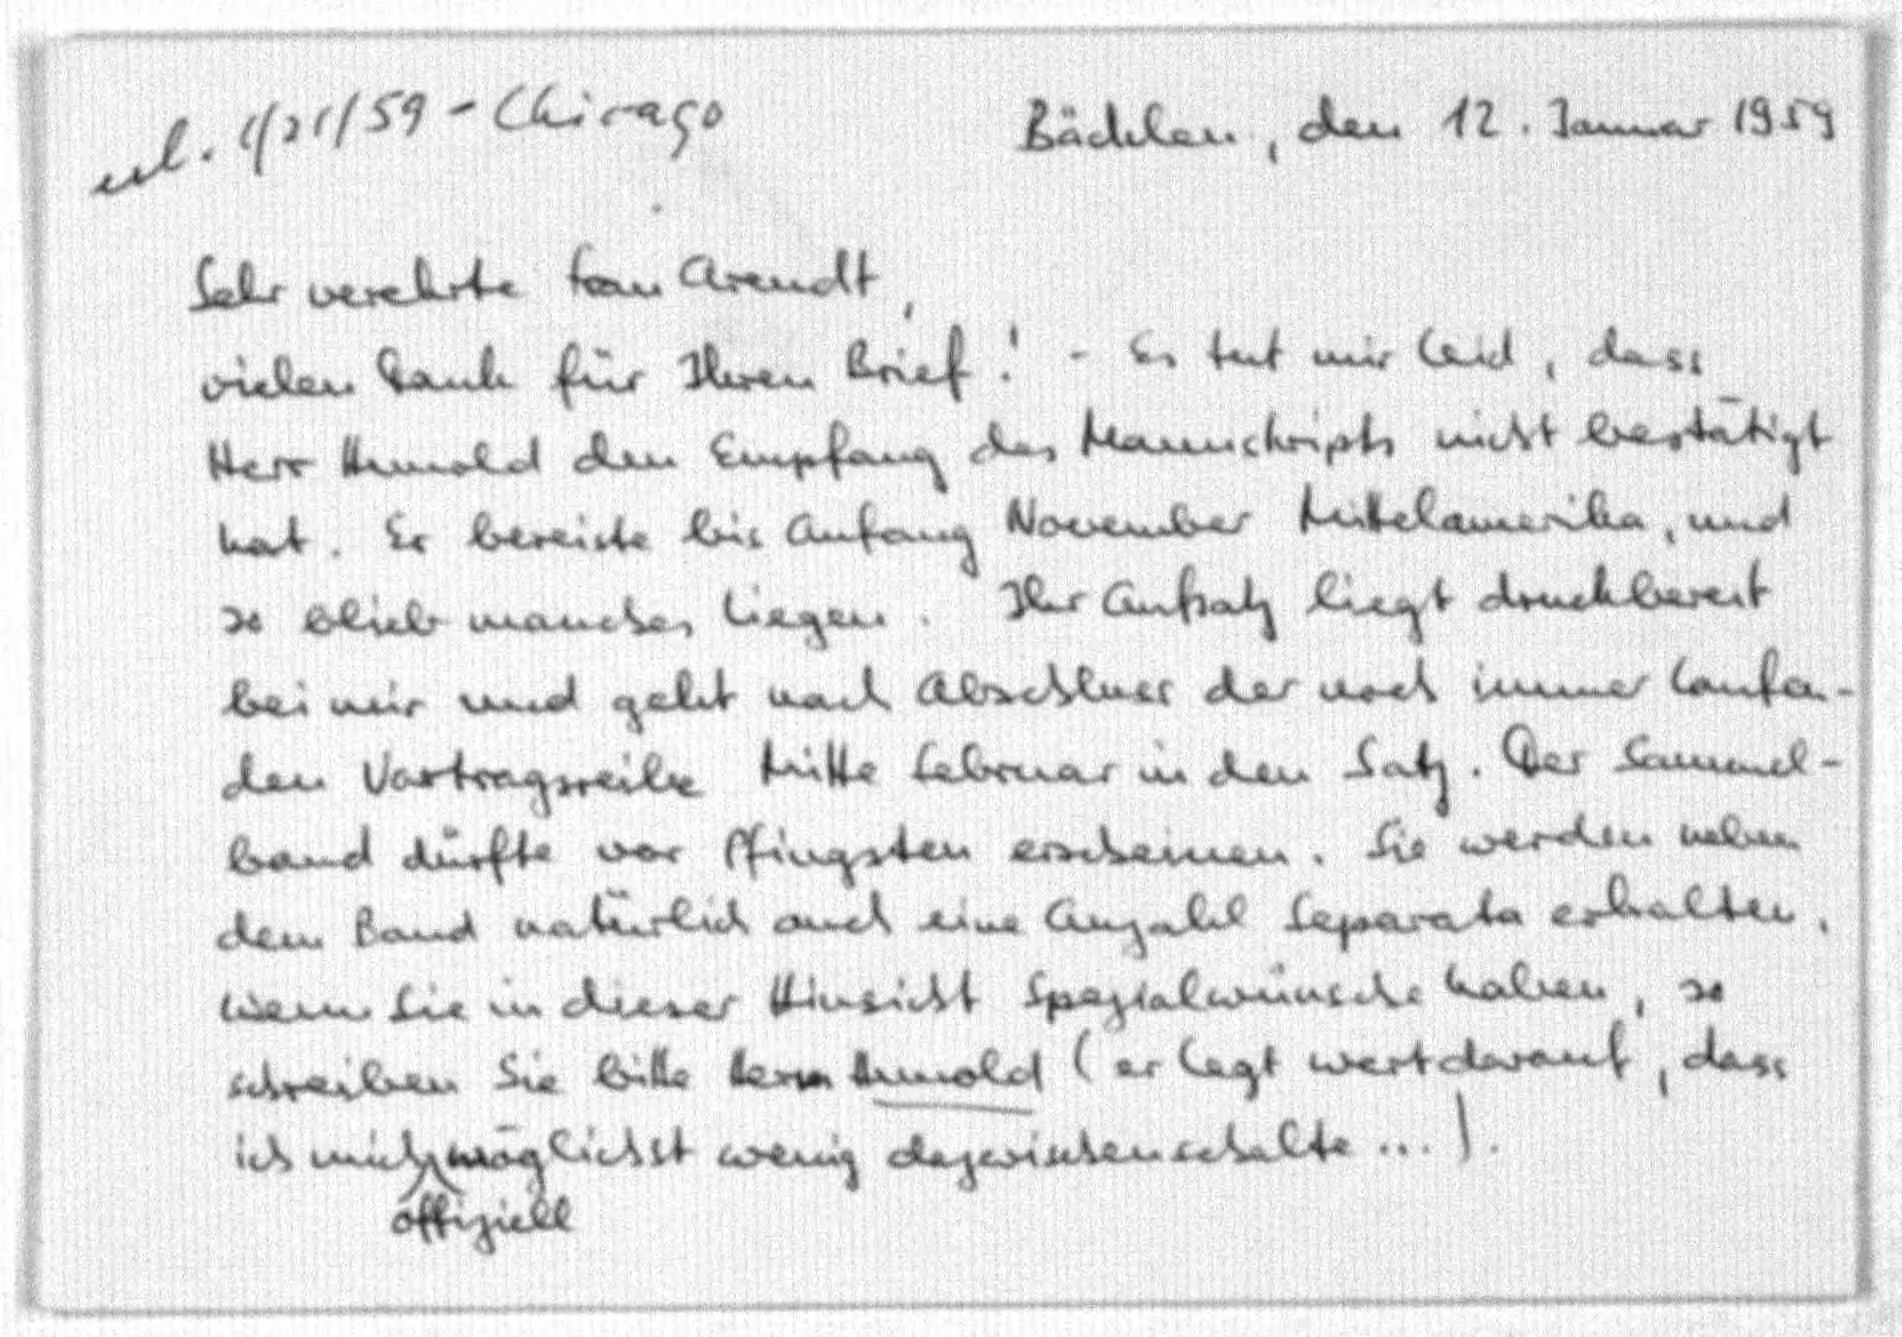 1/21/59 - Chicago
Bächlen, den 12. Januar 1959
Sehr verehrte Frau Arendt,
vielen Dank für Ihren Brief! - Es tut mir leid, dass
Herr Hunold den Empfang des Manuskripts nicht bestätigt
hat. Er bereiste bis Anfang November Mittelamerika, und
so blieb manches liegen. Ihr Aufsatz liegt druckbereit
bei mir und geht nach Abschluss der noch immer laufen-
den Vortragsreihe Mitte Februar in den Satz. Der Sammel-
band dürfte vor Pfingsten erscheinen. Sie werden neben
dem Band natürlich auch eine Anzahl Separata erhalten.
Wenn Sie in dieser Hinsicht Spezialwünsche haben, so
schreiben Sie bitte Herrn Hunold (er legt wert darauf, dass
ich mich möglichst wenig dazwischenschalte ...).
offiziell